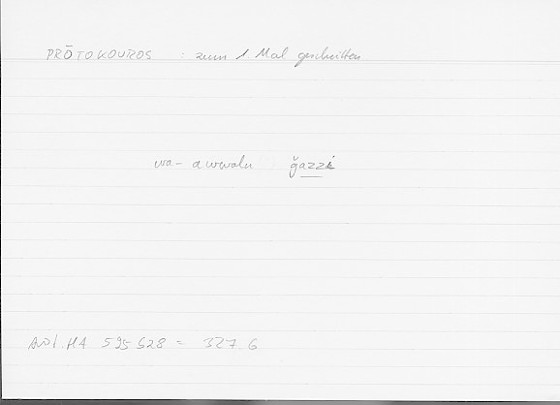 PRŌTOKOUROS : zum 1. Mal geschnitten
wa- awwalu ǧazzi
HA 595 S28 = 327 6